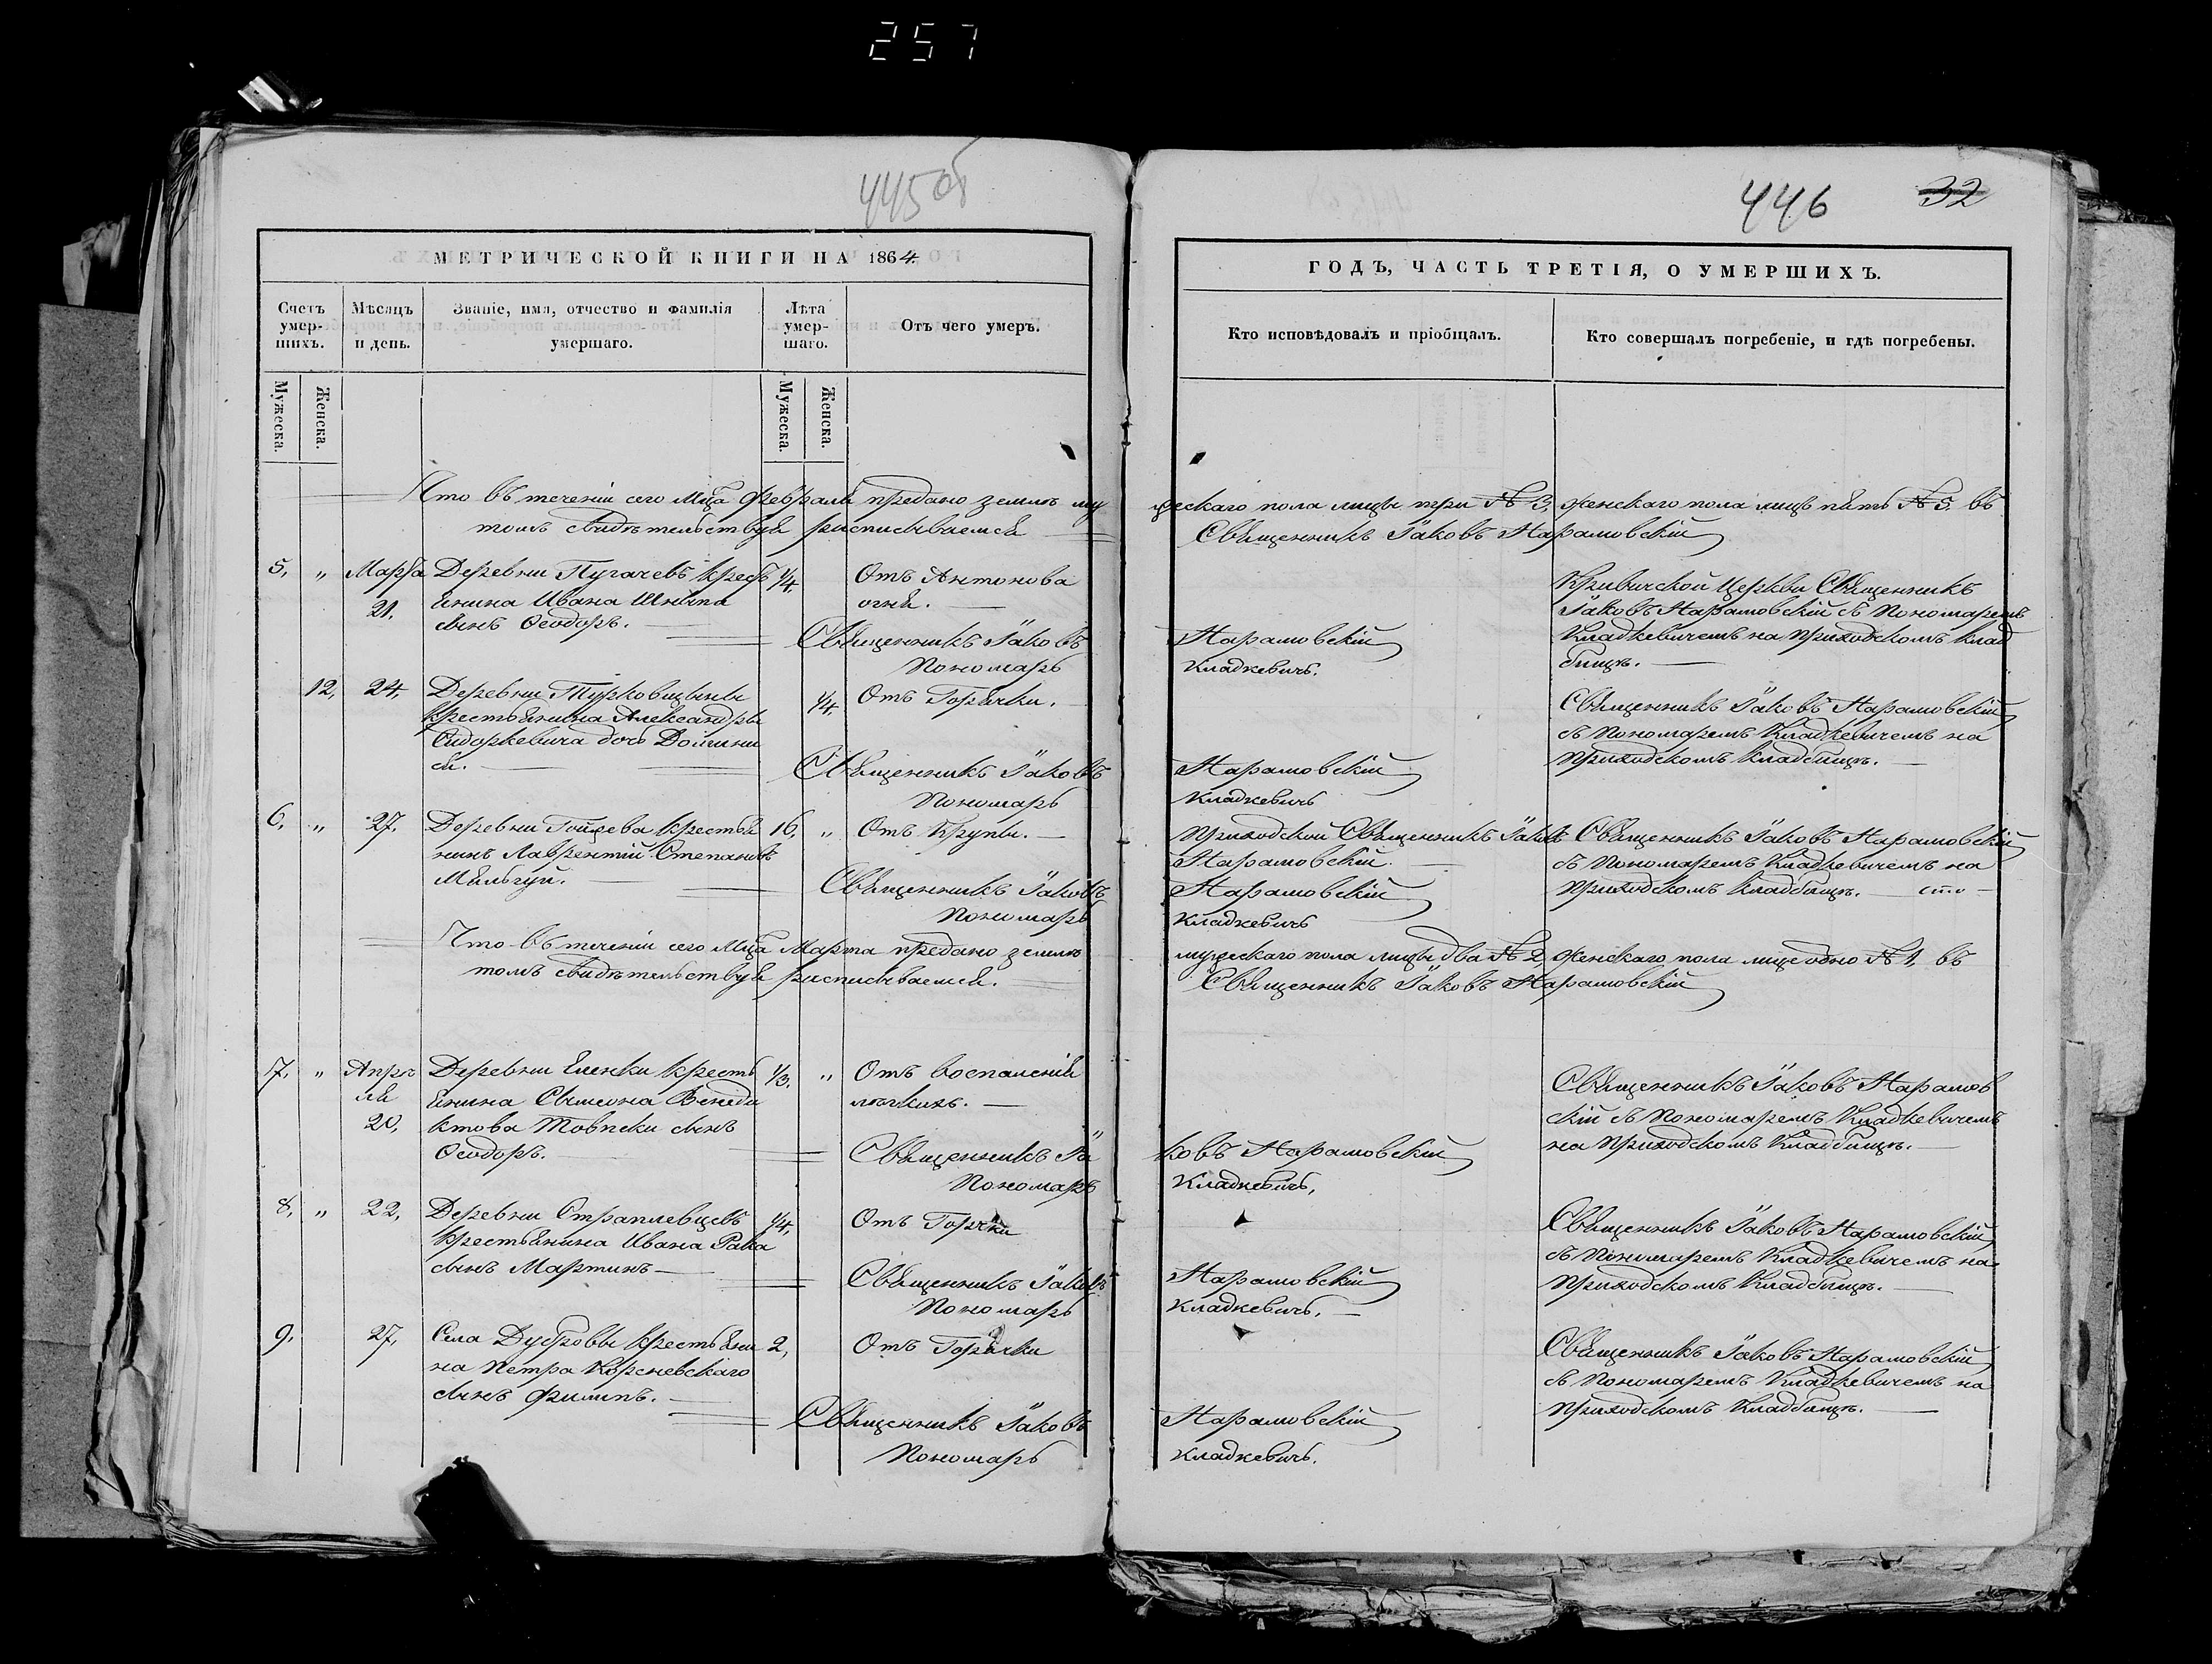 257
445 об
446 32
МЕТРИЧЕСКОЙ КНИГИ НА 1864
Счетъ умер-шихъ.
Мужеска.
Женска.
Мѣсяцъ и день.
Званіе, имя, отчество и фамилія умершаго.
Лѣта умер-шаго.
Мужеска.
Женска.
Отъ чего умеръ.
ГОДЪ, ЧАСТЬ ТРЕТІЯ, О УМЕРШИХЪ.
Кто исповѣдовалъ и пріобщалъ.
Кто совершалъ погребеніе, и гдѣ погребены.
Что въ теченіи сего Мца Февраля предано землѣ му
жескаго пола лицъ три № 3, женскаго пола лицъ пять № 5. въ
томъ свидѣтельствуя росписываемся
Священникъ Іаковъ Нарановскій
5, " Марта Деревни Пугачевъ крест 1/4. Отъ Антонова
21. янина Ивана сынъ Ѳеодоръ. огня.
Священникъ Іаковъ Нарановскій
Пономарь Кладкевичъ.
Кривичской Церкви Священникъ
Іаковъ Нарановскій съ Пономаремъ
Кладкевичемъ на приходскомъ клад
бищѣ.
12, 24, Деревни Турковщины 1/4, Отъ Горячки.
крестьянина Александра
Сидоркевича дочь Домини
ся.
Священникъ Іаковъ Нарановскій
Пономарь Кладкевичъ
Священникъ Іаковъ Нарановскій
съ Пономаремъ Кладкевичемъ на
приходскомъ кладбищѣ.
6, " 27. Деревни крестья 16. " Отъ Крупы.
нинъ Лаврентій Степановъ
Мяльгуй.
приходской Священникъ Іаковъ
Нарановскій.
Священникъ Іаковъ Нарановскій
Пономарь Кладкевичъ
Священникъ Іаковъ Нарановскій
съ Пономаремъ Кладкевичемъ на
приходскомъ кладбищѣ.
Что въ теченіи сего Мца Марта предано землѣ
мужескаго пола лицъ два № 2, женскаго пола лице одно № 1, въ
томъ свидѣтельствуя росписываемся.
Священникъ Іаковъ Нарановскій
7, " Апрѣ Деревни Еленки крест 1/3. " Отъ воспаленія
ля янина Сымеона Венеди легкихъ.
20, ктова Товпеки сынъ
Ѳеодоръ.
Священникъ Іаковъ Нарановскій
Пономарь Кладкевичъ,
Священникъ Іаковъ Нарановскій съ Пономаремъ Кладкевичемъ
на приходскомъ кладбищѣ.
8, " 22, Деревни 1/4, Отъ Горячки
крестьянина Ивана Рака
сынъ Мартинъ
Священникъ Іаковъ Нарановскій
Пономарь Кладкевичъ,
Священникъ Іаковъ Нарановскій
съ Пономаремъ Кладкевичемъ на
приходскомъ кладбищѣ.
9, 27, Села Дубровы крестьяни 2, Отъ Горячки
на Петра Корсневскаго
сынъ Филипъ.
Священникъ Іаковъ Нарановскій
Пономарь Кладкевичъ.
Священникъ Іаковъ Нарановскій
съ Пономаремъ Кладкевичемъ на
приходскомъ кладбищѣ.